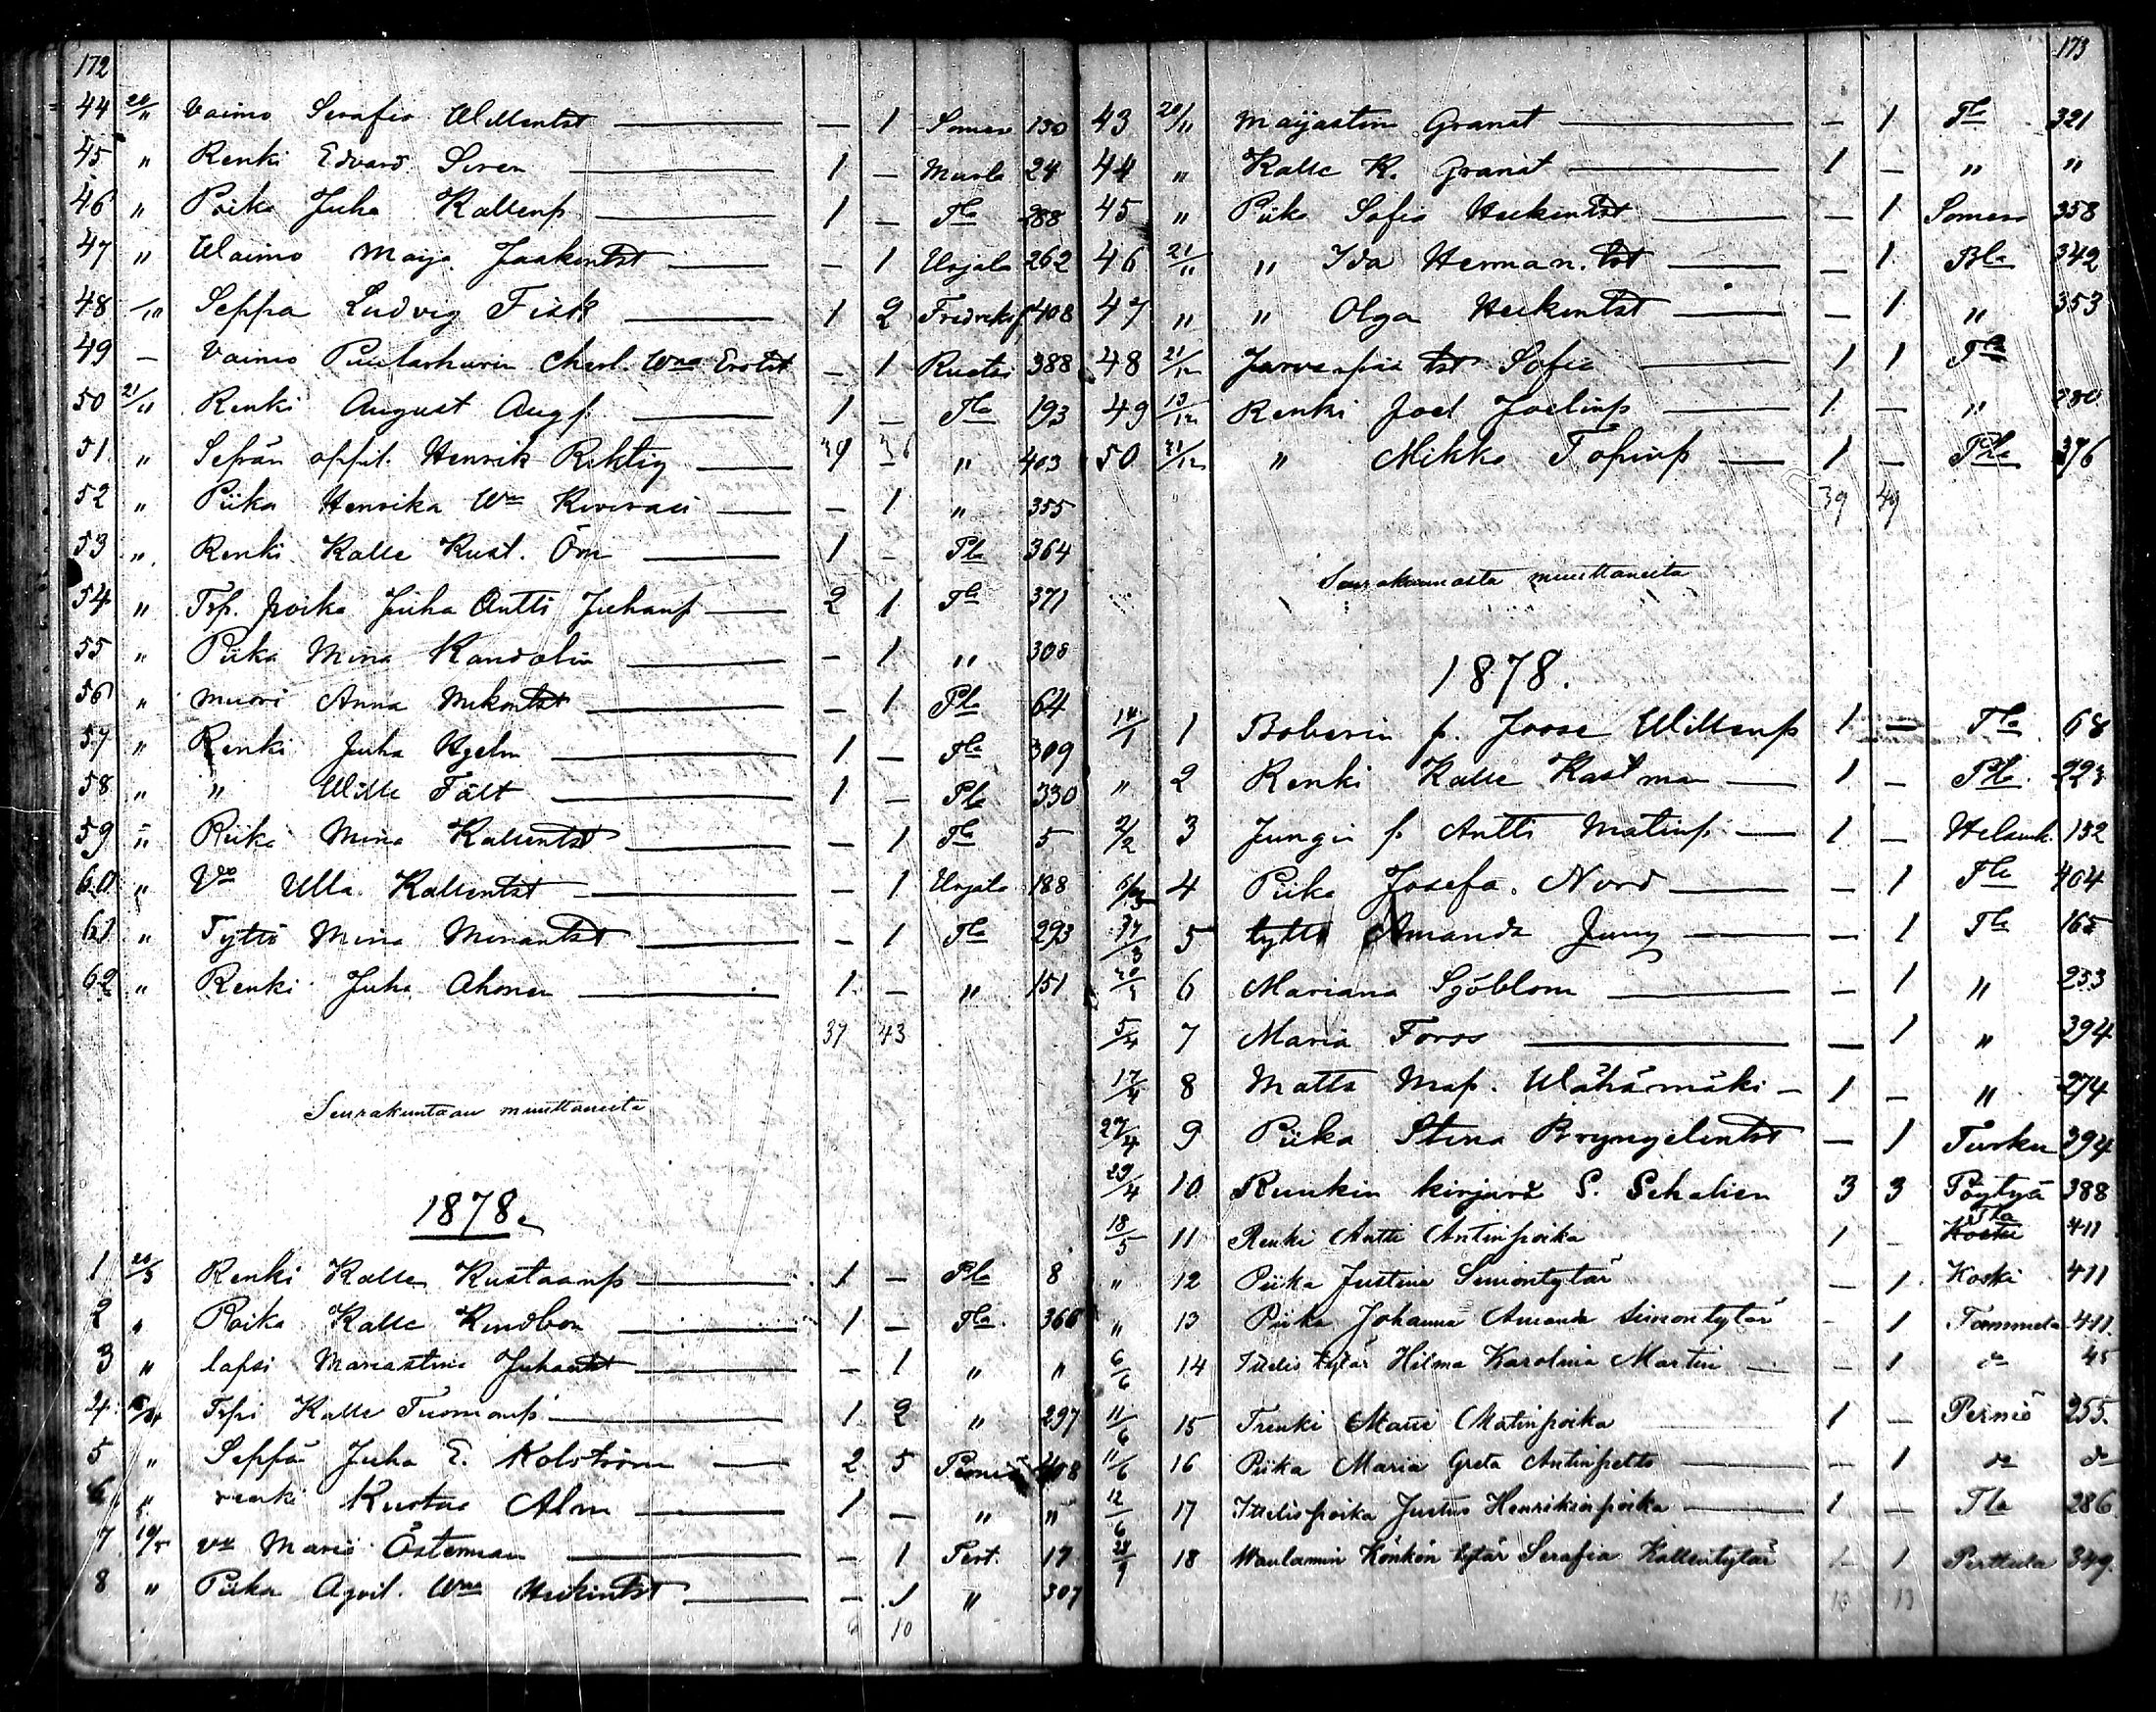 172
44 20/11 Vaimo Serafia Willentst — 1 Somero 130
45 " Renki Edvard Siren 1 — Murla 24
46 " Poika Juha Kallenp 1 — Tla 288
47 " Waimo Maija Jaakontst — 1 Urjala 262
48 "/11 Seppä Ludvig Fisk 1 2 Fredriksf 408
49 — Vaimo Puutarhurin Charl. Wma Erotst — 1 Rusko 388
50 21/11 Renki August Aug p. 1 — Tla 193
51 " Sepän oppil. Henrik Riktig " 403
52 " Piika Henrika Wma — 1 " 355
53 " Renki Kalle Kust. Öm 1 — Pla 364
54 " Trp. poika Juha Antti Juhanp 2 1 Tla 371
55 " Piika Mina Kandolin — 1 " 308
56 " muori Anna Mikontst — 1 Pla 64
57 " Renki Juha Hjelm 1 — Tla 309
58 " " Wille Fält 1 — Pla 330
59 " Piika Mina Kallentst — 1 Tla 5
60 " Vo Ulla Kallentst — 1 Urjala 188
61 " Tyttö Mina Minantst — 1 Tla 293
62 " Renki Juha Ahonen 1 — " 151
37 43
Seurakuntaan muuttaneita
1878.
1 20/3 Renki Kalle Kustaanp 1 — Pla 8
2 " Poika Kalle Kindbom 1 — Tla 366
3 " lapsi Mariastina Juhantst — 1 " "
4 Trpi Kalle Tuomanp 1 2 " 297
5 " Seppä Juha E. Kolström 2 5 408
6 " renki Kustaa Alm 1 — " "
7 19/5 va Maria Österman — 1 Pert. 17
8 " Piika Aqvil. Wma Heikintst — 1 " 307
6 10
173
43 20/11 Maijastin Granat — 1 Tla 321
44 " Kalle K. Granat 1 — " "
45 " Piika Sofia Heikintst — 1 Somero 358
46 21/11 " Ida Herman. tst — 1 Pla 342
47 " " Olga Heikintst — 1 " 353
48 21/12 Jarvenpää tst Sofia 1 1 Tla
49 13/12 Renki Joel Joelinp 1 — " 280
50 31/12 " Mikko Topinp 1 — Pla 376
39 49
Seurakunnasta muuttaneita
1878.
14/1 1 Boberin p. Joose Willenp 1 — Tla 68
" 2 Renki Kalle Kastman 1 — Pla 223
2/2 3 Jungin p Antti Matinp 1 — Helsink. 132
4 Piika Josefa Nord — 1 Tla 404
5 tyttö Amanda Jung — 1 Tla 165
6 Mariana Sjöblom — 1 " 253
5/4 7 Maria Forss — 1 " 394
17/4 8 Matts Map. Wähämäki 1 — " 274
27/4 9 Piika Stina Bryngelintst — 1 Turku 394
29/4 10 Ruukin kirjurä S. Schalien 3 3 Pöytyä 388
18/5 11 Renki Antti Antinpoika 1 — Tla Koski 411
" 12 Piika Justina Simontytär — 1 Koski 411
" 13 Piika Johanna Amanda Simontytär — 1 Tammela 411.
6/6 14 Itselis tytär Hilma Karolina Martin — 1 do 45
11/6 15 Trenki Matti Matinpoika 1 — Perniö 255.
11/6 16 Piika Maria Greta Antinpettu — 1 do do
12/6 17 Itselispoika Justus Henrikinpoika 1 — Tla 286
18 Waulamin Könkön tytär Serafia Kallentytär 1 Perttula 349.
10 13